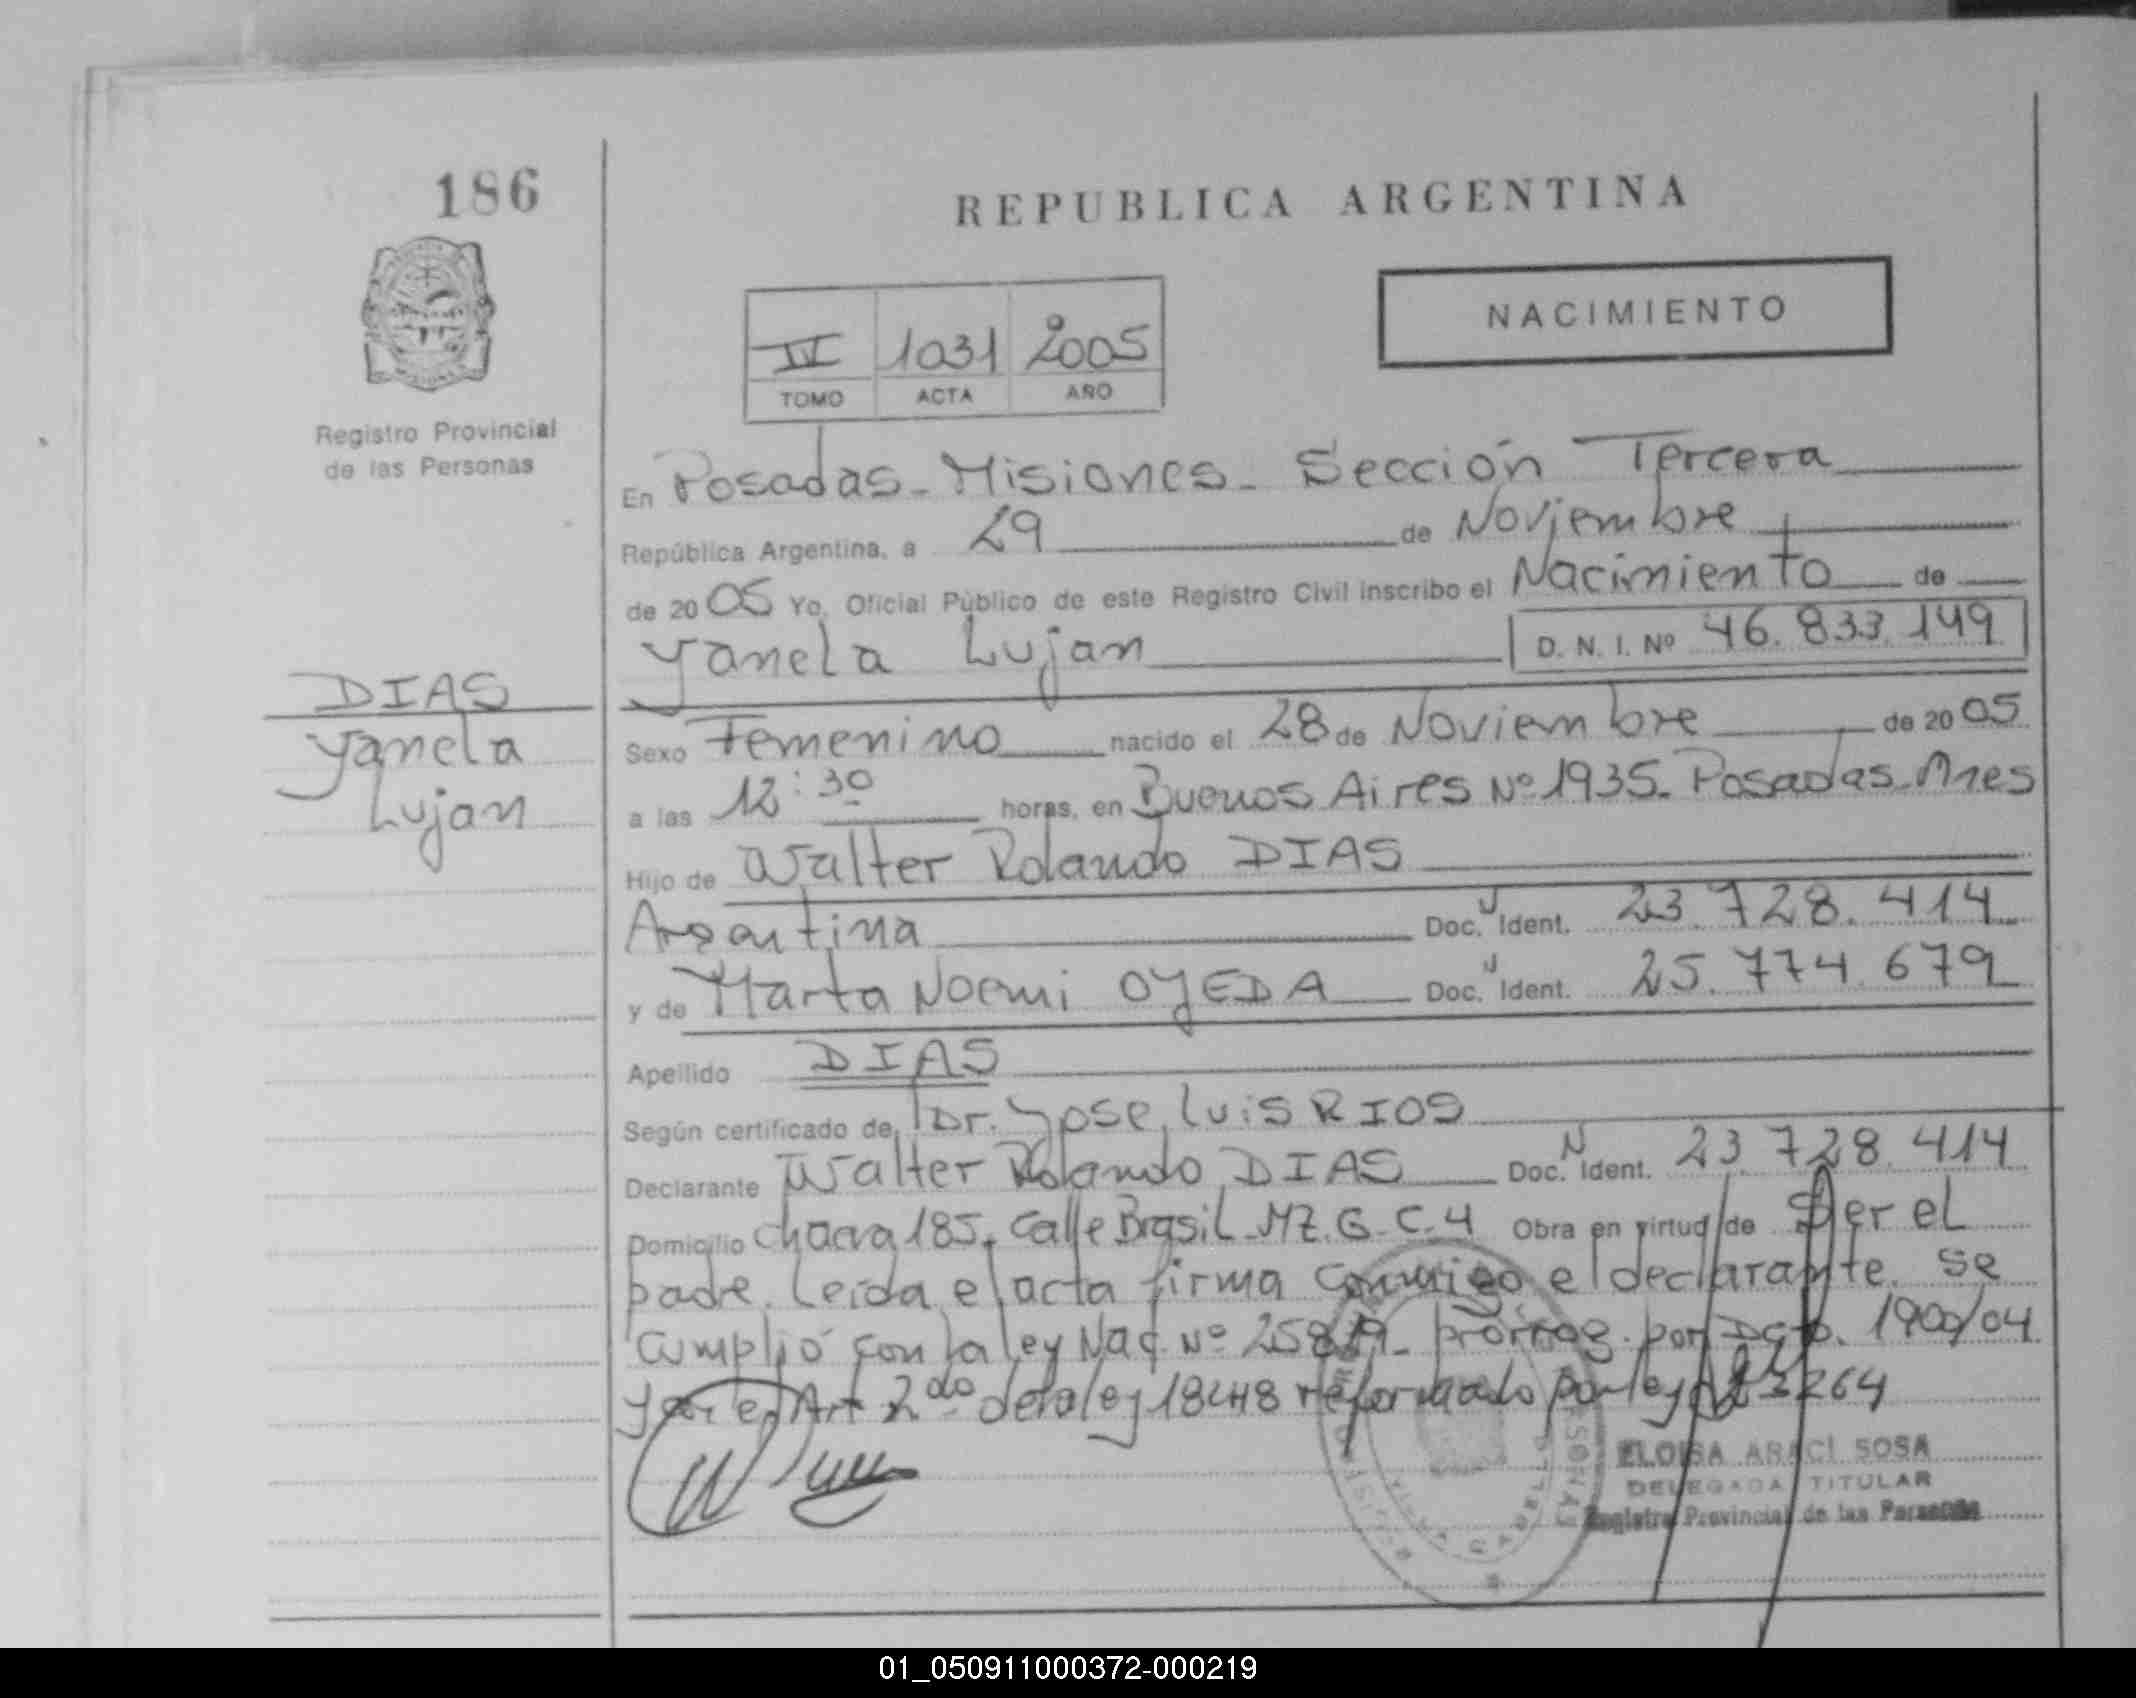 186
REPUBLICA ARGENTINA
NACIMIENTO
IV 1031 2005
TOMO ACTA AÑO
Registro Provincial
de las Personas
En Posadas - Misiones - Sección Tercera
República Argentina, a 29 de Noviembre
de 2005 Yo, Oficial Público de este Registro Civil inscribo el Nacimiento de
Yanela Lujan D. N. I. Nº 46.833.149
DIAS
Yanela
Lujan
Sexo Femenino nacido el 28 de Noviembre de 2005
a las 12:30 horas, en Buenos Aires Nº 1935. Posadas. Mnes
Hijo de Walter Rolando DIAS
Argentina Doc. Ident. 23.728.414
y de Marta Noemi OJEDA Doc. Ident. 25.774.679
Apellido DIAS
Según certificado de Dr. Jose Luis RIOS
Declarante Walter Rolando DIAS Doc. Ident. 23.728.414
Domicilio chacra 185. Calle Brasil. MZ. G. C. 4 Obra en virtud de Ser el
padre. Leída el acta firma conmigo el declarante. Se
cumplió con la ley Nac. Nº prórrog. por Dcto. 1900/04
y el Art 2do de la ley 18448 reformado por ley 23264
ELOISA ARACI SOSA
DELEGADA TITULAR
Registro Provincial de las Personas
01_050911000372-000219